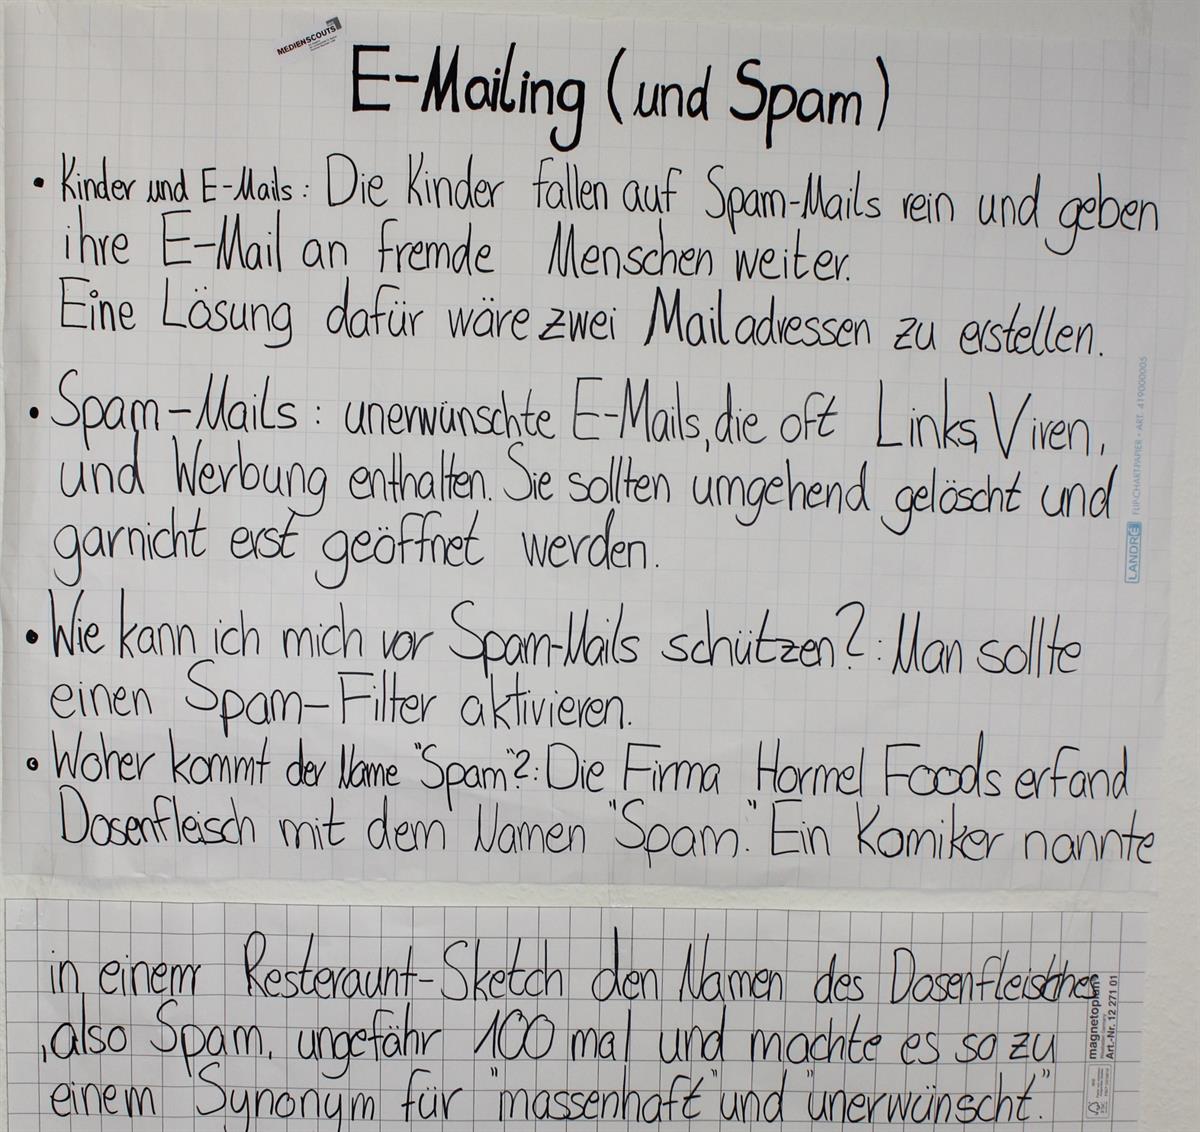 MEDIENSCOUTS
E-Mailing (und Spam)
• Kinder und E-Mails: Die Kinder fallen auf Spam-Mails rein und geben
ihre E-Mail an fremde Menschen weiter.
Eine Lösung dafür wäre zwei Mailadressen zu erstellen.
• Spam-Mails: unerwünschte E-Mails, die oft Links, Viren,
und Werbung enthalten. Sie sollten umgehend gelöscht und
garnicht erst geöffnet werden.
• Wie kann ich mich vor Spam-Mails schützen?: Man sollte
einen Spam-Filter aktivieren.
• Woher kommt der Name "Spam"?: Die Firma Hormel Foods erfand
Dosenfleisch mit dem Namen "Spam". Ein Komiker nannte
in einem Resteraunt-Sketch den Namen des Dosenfleisches
,also Spam, ungefähr 100 mal und machte es so zu
einem Synonym für "massenhaft" und "unerwünscht".
LANDRÉ FLIPCHARTPAPIER • ART. 419000005
magnetoplan®
Art.-Nr. 12 271 01